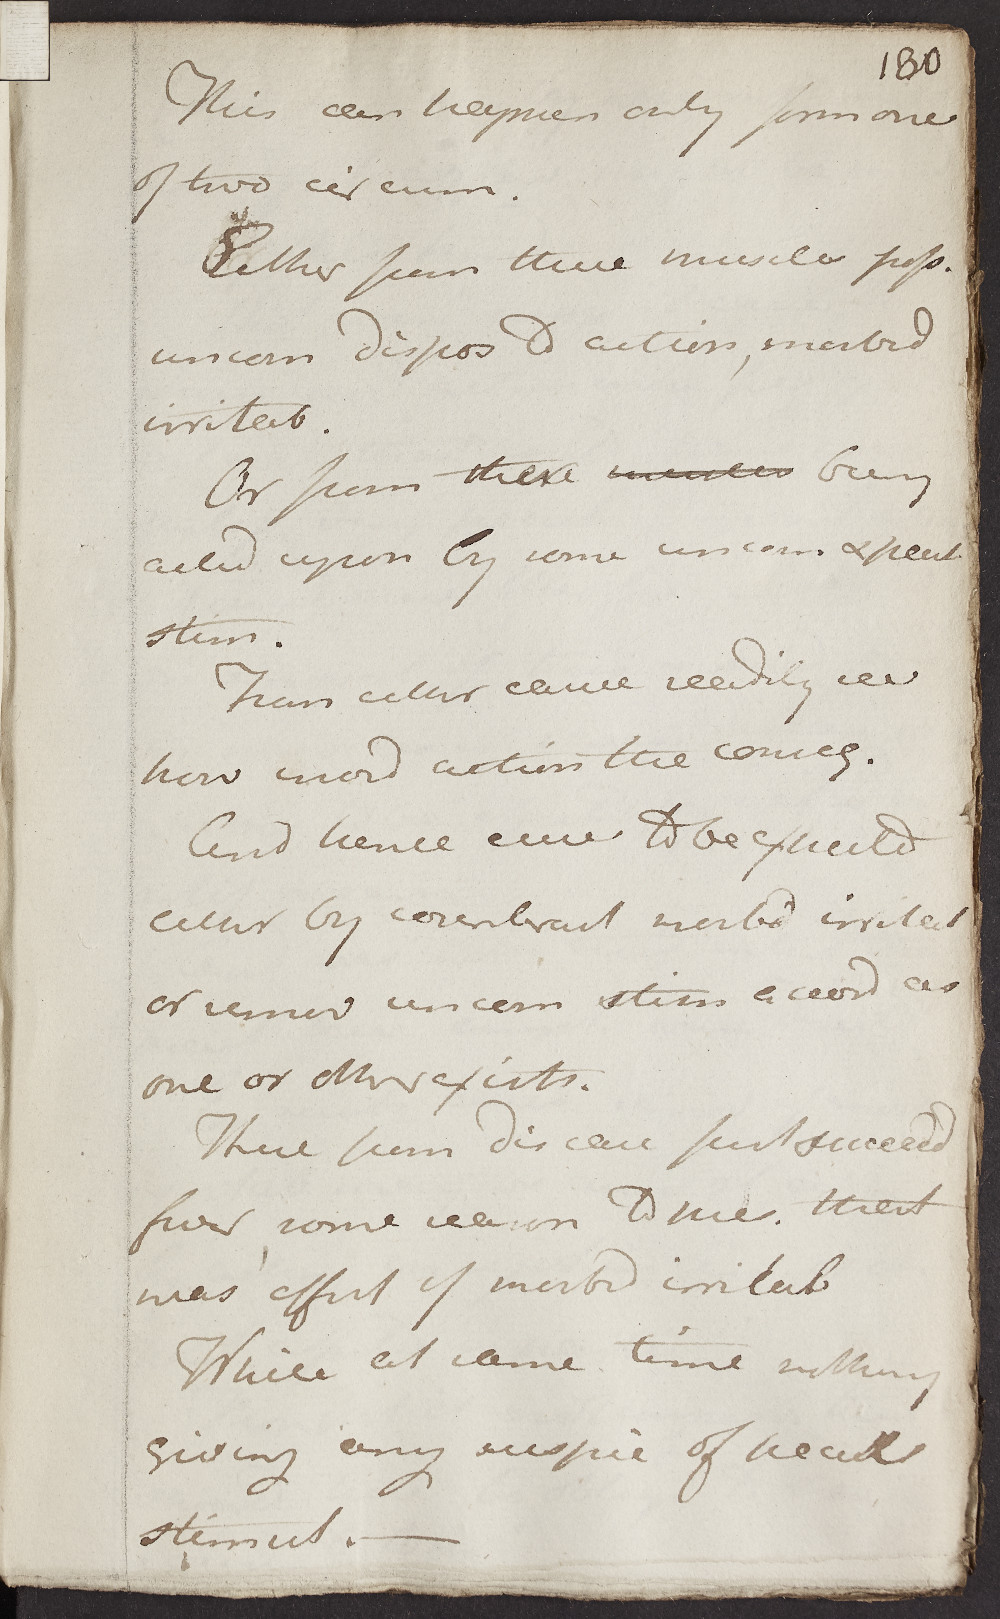 180
This can happen only from one
of two circum.
Either from these muscles poss.
uncom dispos to action, morbid
irritab.
Or from there muscles being
acted upon by some uncom. & pecul
stim.
From either cause readily see
how inord action the conseq.
And hence cure to be expected
either by counteract morbd irritab
or remov uncom stim accord as
one or other exists.
These from disease just succeedd
fever, some reason to me. that
was effect of morbd irritab
While at same time nothing
giving any suspic of pecul
stimul. —